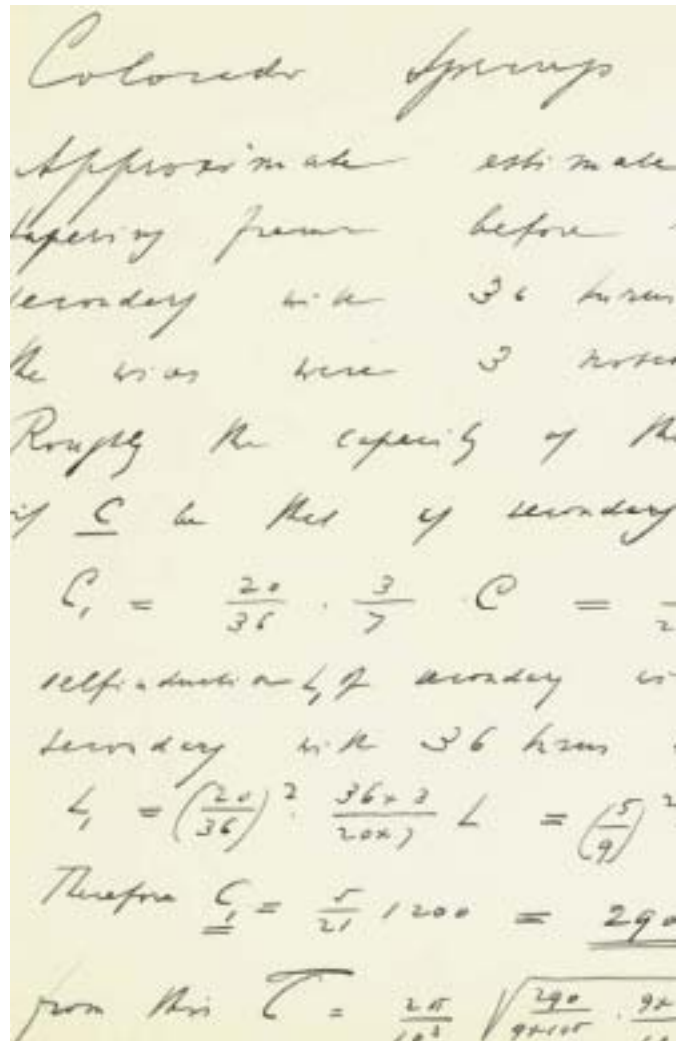 Colorado Springs
Approximate estimate
tapering frame before
secondary with 36 turns
the wires were 3 notches
Roughly the capacity of the
if C be that of secondary
C₁ = 20/36 · 3/7 · C =
selfinduction L₁ of secondary
secondary with 36 turns
L₁ = (20/36)² · 36×3/20×7 L = (5/9)²
Therefore C₁ = 5/21 1200 = 290
from this T = 2π/10³ √290/9×10⁵ ·